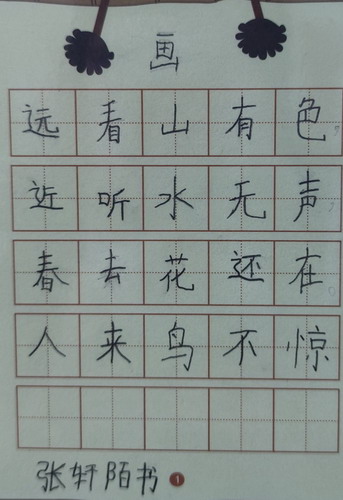 画
远看山有色，
近听水无声，
春去花还在。
人来鸟不惊
张轩陌书
1